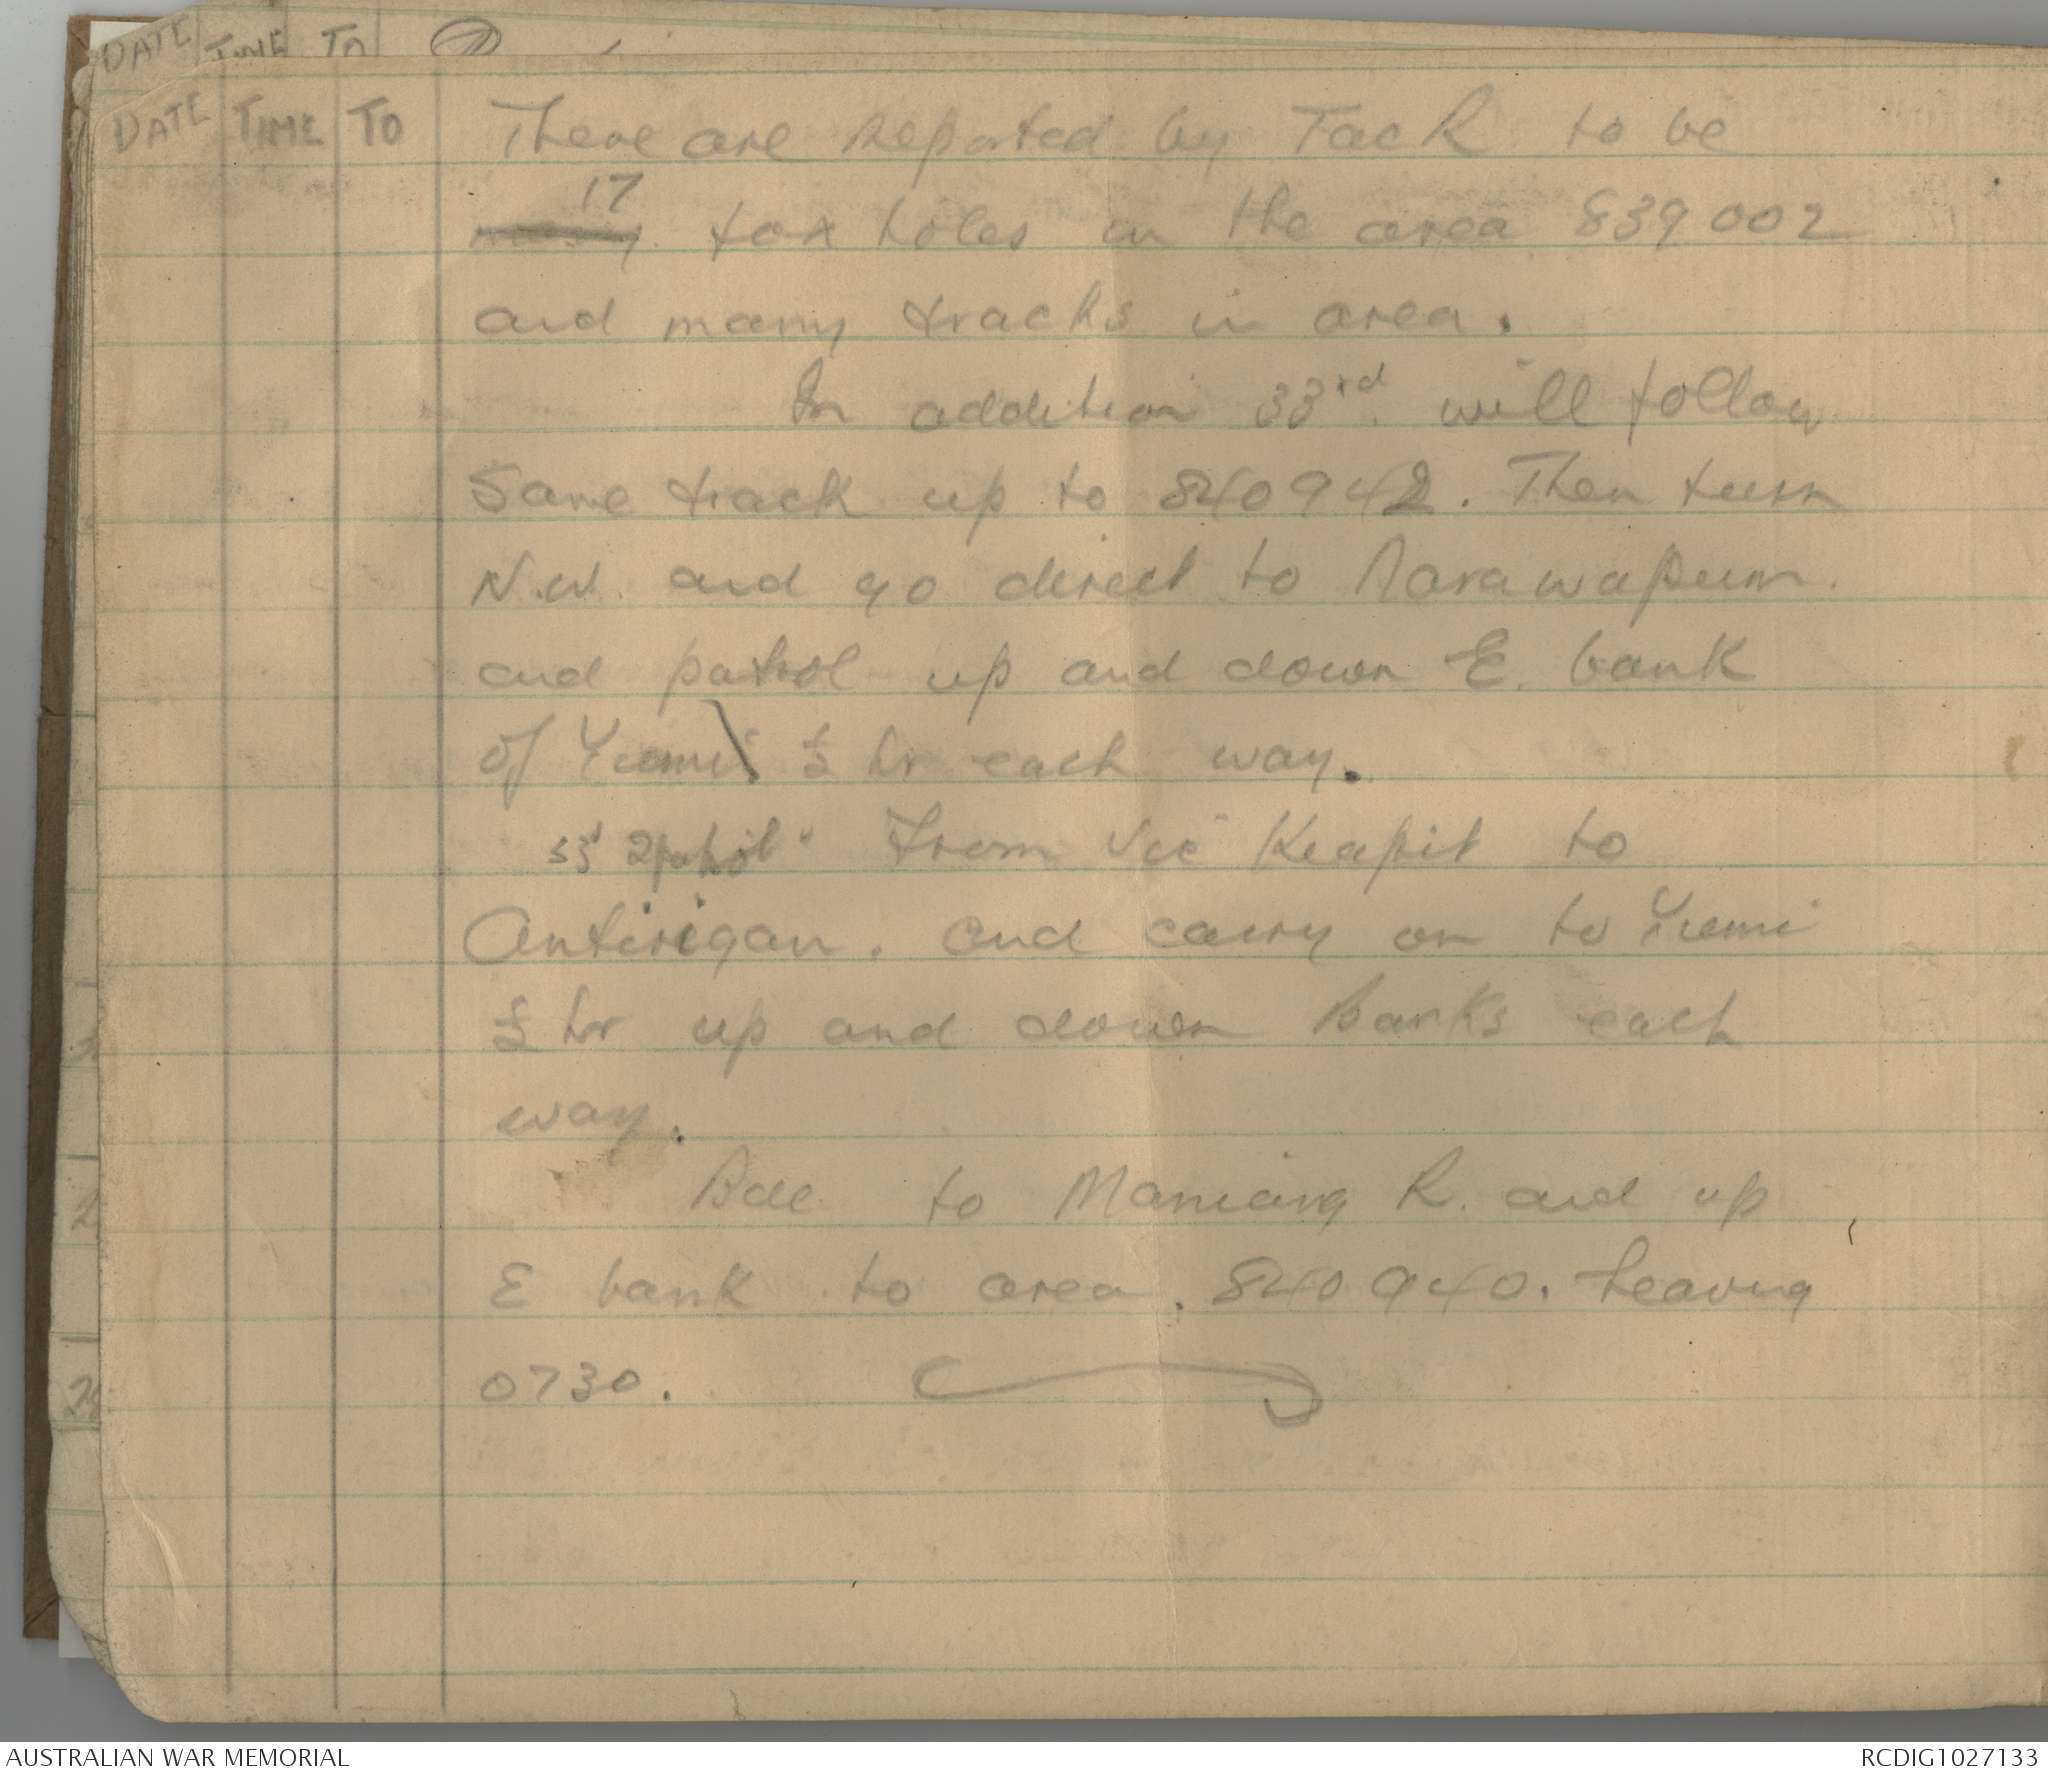 DATE TIME TO
DATE TIME TO There are reported by Tac R to be
many 17 fox holes in the area 839002
and many tracks in area.
In addition 33rd will follow
Same track up to 840942. Then turn
N.W. and go direct to Narawapum.
and patrol up and down E. bank
of Yumi ½ hr each way.
2 patrol from Vic Keapit to
Antirigan. and carry on to Yumi
½ hr up and down Banks each
way.
Bde to Maniang R. and up
E bank to area. 840940. Leaving
0730.
AUSTRALIAN WAR MEMORIAL
RCDIG1027133